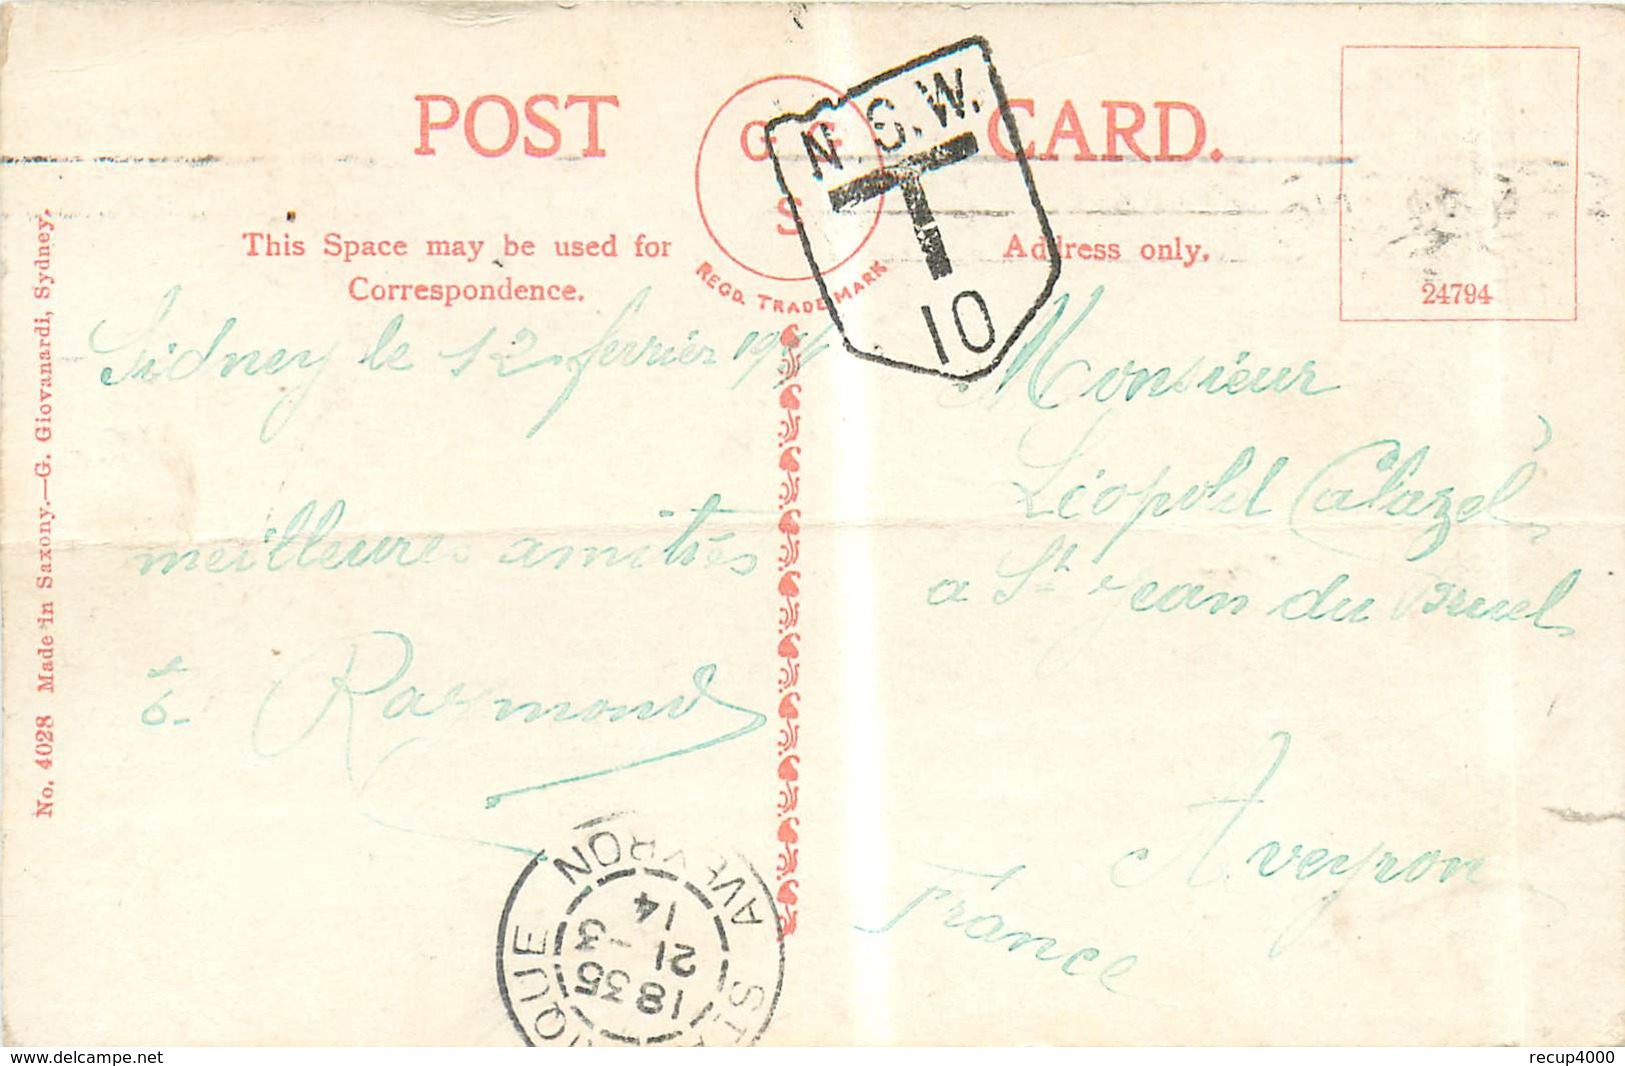 POST CARD.
G. G. S
REGD. TRADE MARK
N.S.W.
T
10
This Space may be used for
Correspondence.
Address only.
24794
No. 4028 Made in Saxony.—G. Giovanardi, Sydney.
Sidney le 12 fevrier
meilleures amitiés
Raymond
Monsieur
Léopold Calazel
a St Jean du Bruel
Aveyron
France
18 35
21 -3
14
AVEYRON
recup4000